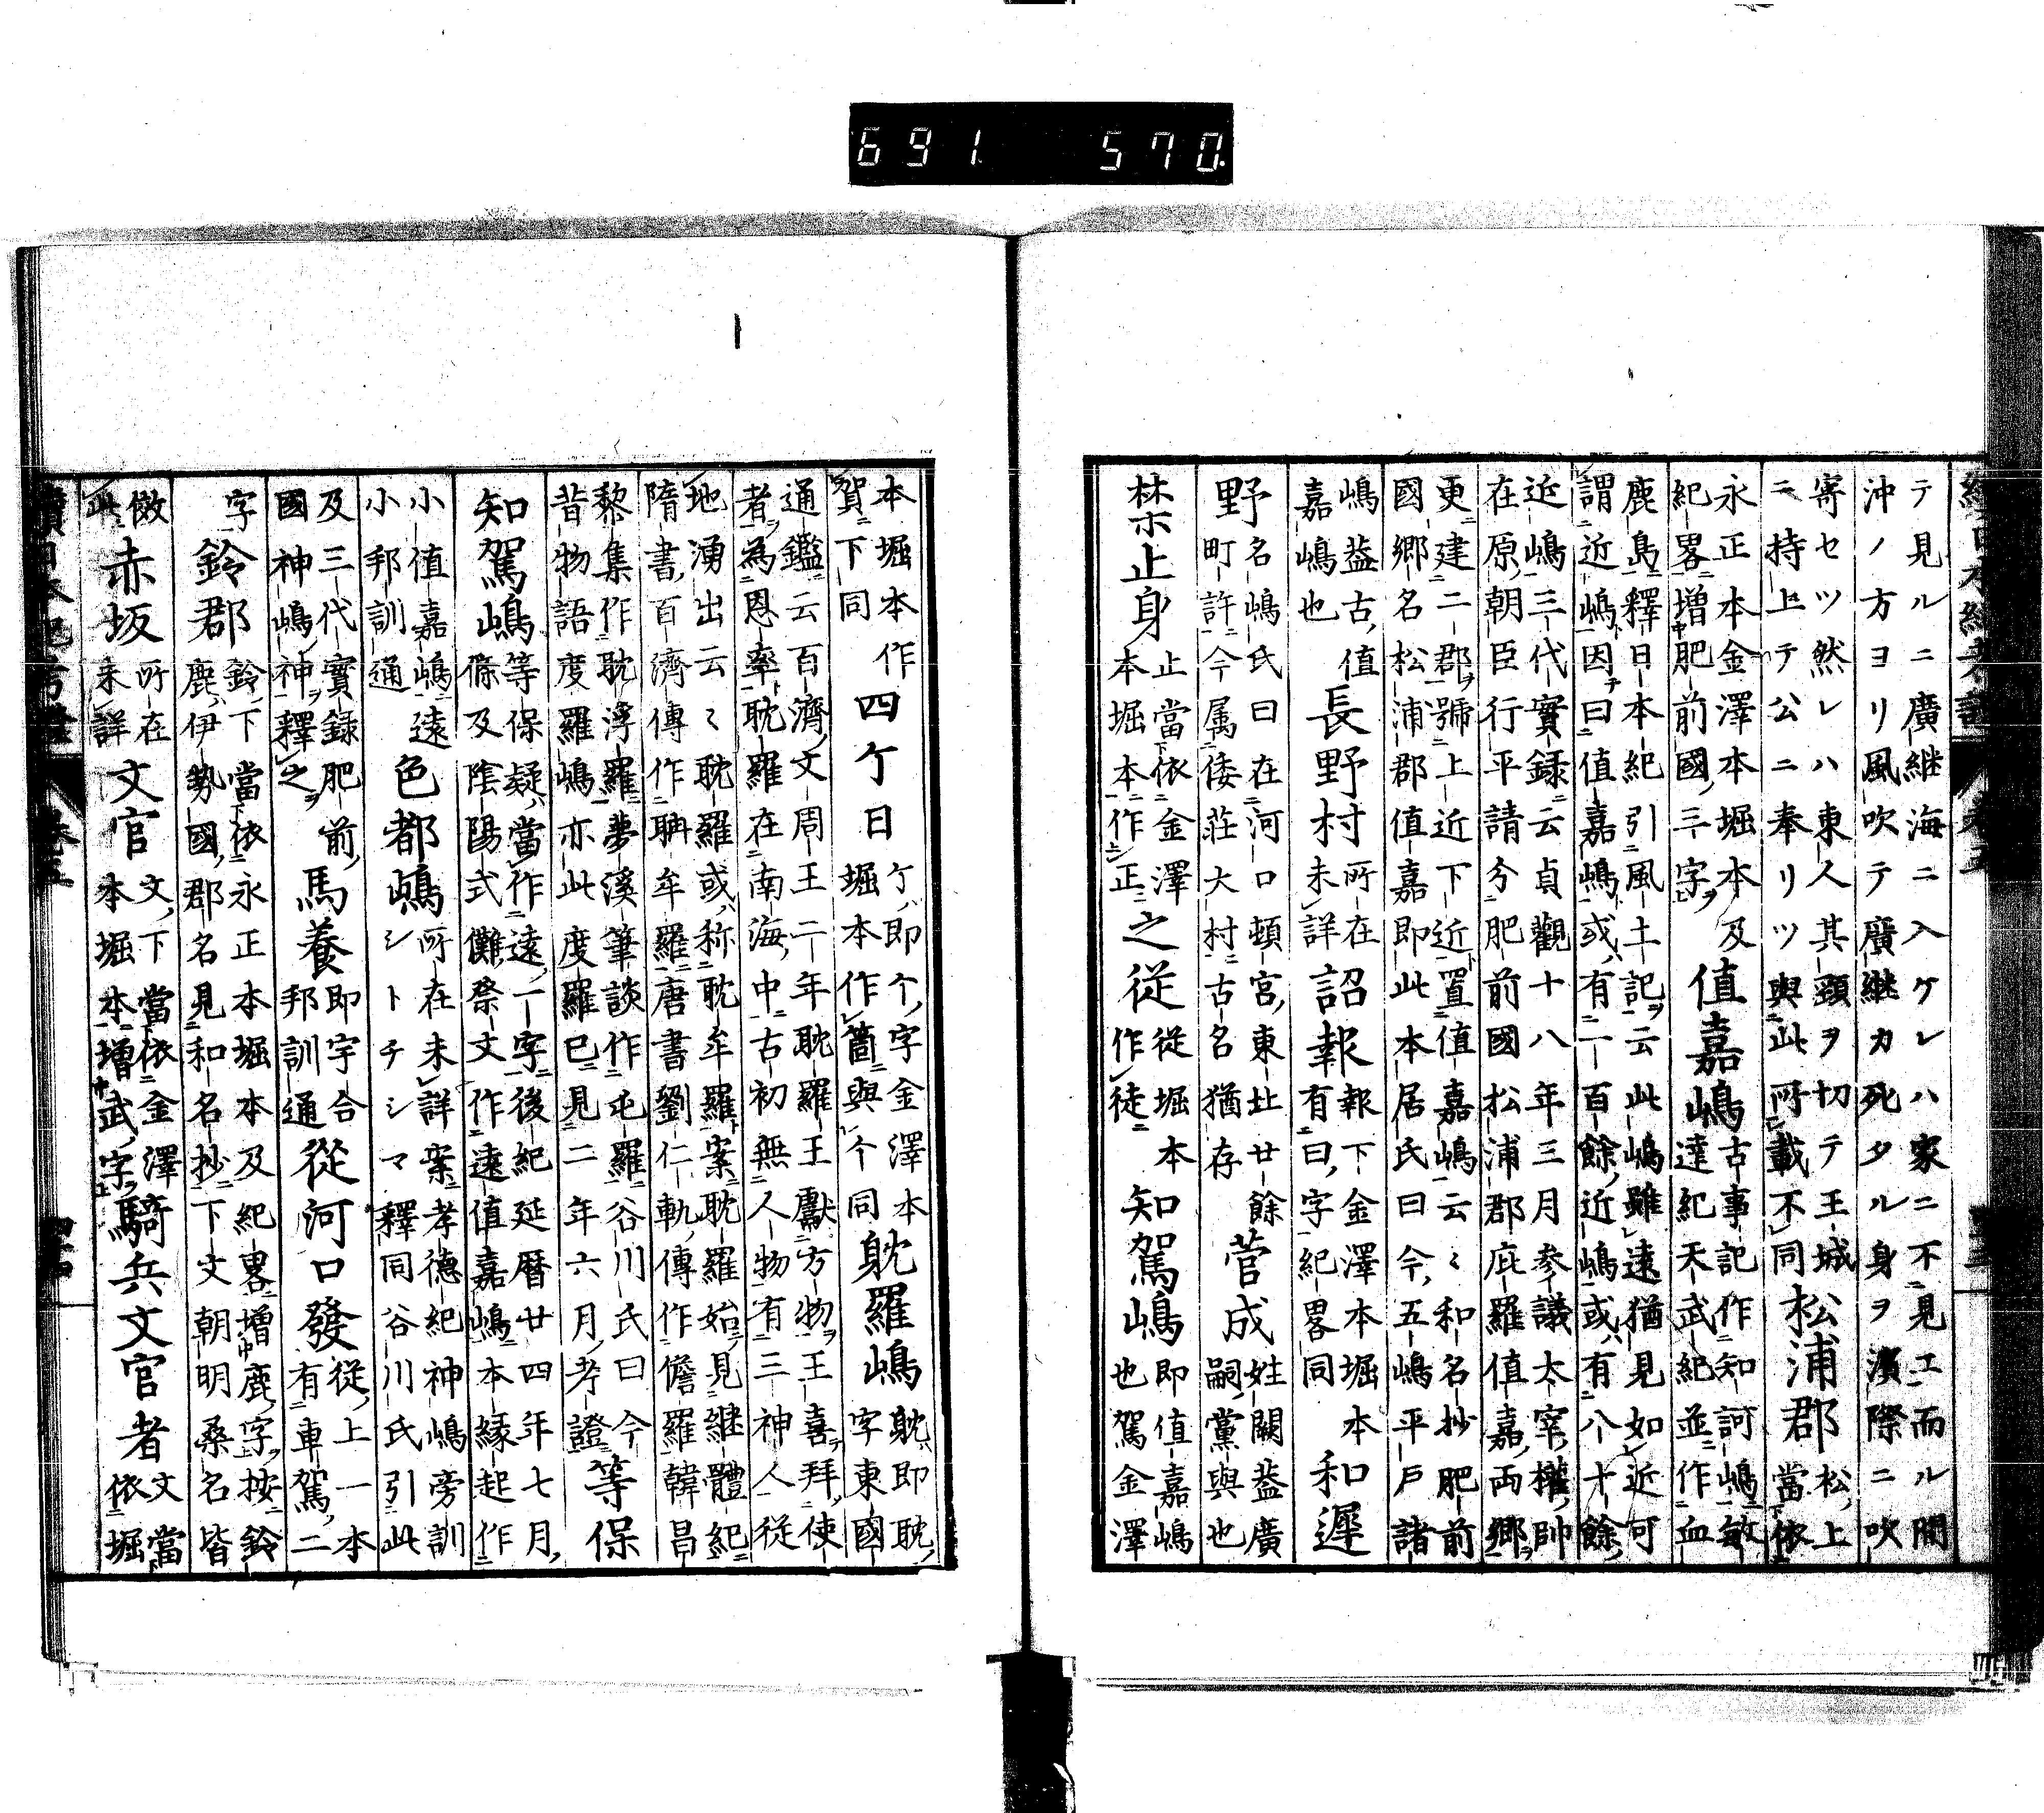 691 570
テ見ルニ廣継海ニ入ケレハ家ニ不見エ而ル間
沖ノ方ヨリ風吹テ廣継カ死タル身ヲ濱際ニ吹
寄セツ然レハ東人其頸ヲ切テ王城
ニ持上テ公ニ奉リツ與此所載不同
松浦郡
松上
當依
永正本金澤本堀本及
紀畧増肥前國三字
値嘉嶋
古事記作知訶嶋敏
達紀天武紀並作血
鹿島釋日本紀引風土記云此嶋雖遠猶見如近可
謂近嶋因曰値嘉嶋或有一百餘近嶋或有八十餘
近嶋三代實録云貞觀十八年三月参議太宰權帥
在原朝臣行平請分肥前國松浦郡庇羅値嘉両郷
更建二郡號上近下近置値嘉嶋云〻和名抄肥前
國郷名松浦郡値嘉即此本居氏曰今五嶋平戸諸
嶋葢古値
嘉嶋也
長野村
所在
未詳
詔報
報下金澤本堀本
有曰字紀畧同
和遲
野
名嶋氏曰在河口頓宮東北廿餘
町許今属倭荘大村古名猶存
菅成
姓闕葢廣
嗣黨與也
禁止身
止當依金澤
本堀本作正
之従
従堀本
作徒
知駕嶋
即値嘉嶋
也駕金澤
本堀本作
賀下同
四ケ日
ケ即个字金澤本
堀本作箇與个同
躭羅嶋
躭即耽
字東國
通鑑云百濟文周王二年耽羅王獻方物王喜拜使
者為恩率耽羅在南海中古初無人物有三神人従
地湧出云〻耽羅或称耽牟羅案耽羅始見継體紀
隋書百濟傳作聃牟羅唐書劉仁軌傳作儋羅韓昌
黎集作耽浮羅夢溪筆談作乇羅谷川氏曰今
昔物語度羅嶋亦此度羅已見二年六月考證
等保
知駕嶋
等保疑當作遠一字後紀延暦廿四年七月
條及陰陽式儺祭文作遠値嘉嶋本縁起作
小値嘉嶋遠
小邦訓通
色都嶋
所在未詳案孝德紀神嶋旁訓
シトチシマ釋同谷川氏引此
及三代實録肥前
國神嶋神釋之
馬養
即宇合
邦訓通
従河口發
従上一本
有車駕二
字
鈴郡
鈴下當依永正本堀本及紀畧増鹿字按鈴
鹿伊勢國郡名見和名抄下文朝明桑名皆
倣
此
赤坂
所在
未詳
文官
文下當依金澤
本堀本増武字
騎兵文官者
文當
依堀
續日本紀考證
卷五